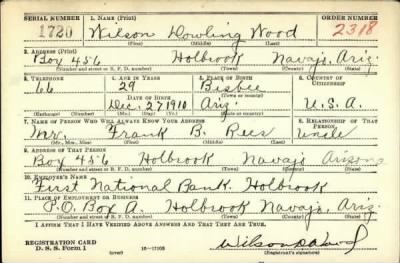 SERIAL NUMBER 1. NAME (Print) ORDER NUMBER
1720 Wilson Dowling Wood 2318
(First) (Middle) (Last)
2. ADDRESS (Print)
Box 456 Holbrook Navajo, Ariz.
(Number and street or R. F. D. number) (Town) (County) (State)
3. TELEPHONE 4. AGE IN YEARS 5. PLACE OF BIRTH 6. COUNTRY OF CITIZENSHIP
66 29 Bisbee
DATE OF BIRTH (Town or county)
Dec. 27 1910 Ariz. U.S.A.
(Exchange) (Number) (Mo.) (Day) (Yr.) (State or country)
7. NAME OF PERSON WHO WILL ALWAYS KNOW YOUR ADDRESS 8. RELATIONSHIP OF THAT PERSON
Mr. Frank B. Rees Uncle
(Mr., Mrs., Miss) (First) (Middle) (Last)
9. ADDRESS OF THAT PERSON
Box 456 Holbrook Navajo Arizona
(Number and street or R. F. D. number) (Town) (County) (State)
10. EMPLOYER'S NAME
First National Bank. Holbrook
11. PLACE OF EMPLOYMENT OR BUSINESS
P.O. Box A. Holbrook Navajo, Ariz.
(Number and street or R. F. D. number) (Town) (County) (State)
I AFFIRM THAT I HAVE VERIFIED ABOVE ANSWERS AND THAT THEY ARE TRUE.
REGISTRATION CARD
D. S. S. Form 1 (over) 16-17105
(Registrant's signature)